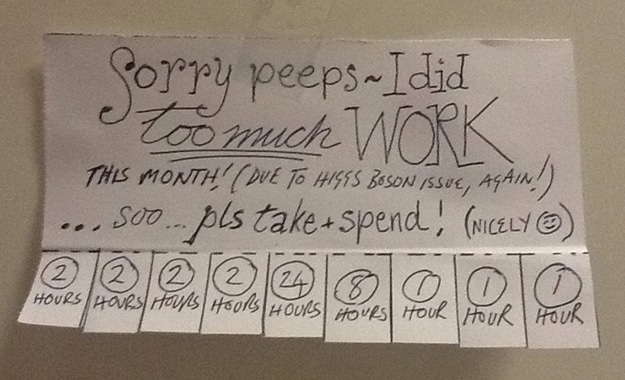 Sorry peeps ~ I did
too much WORK
THIS MONTH! (DUE TO HIGGS BOSON ISSUE, AGAIN!)
... soo... pls take + spend! (NICELY ☺)
2 HOURS 2 HOURS 2 HOURS 2 HOURS 24 HOURS 8 HOURS 1 HOUR 1 HOUR 1 HOUR